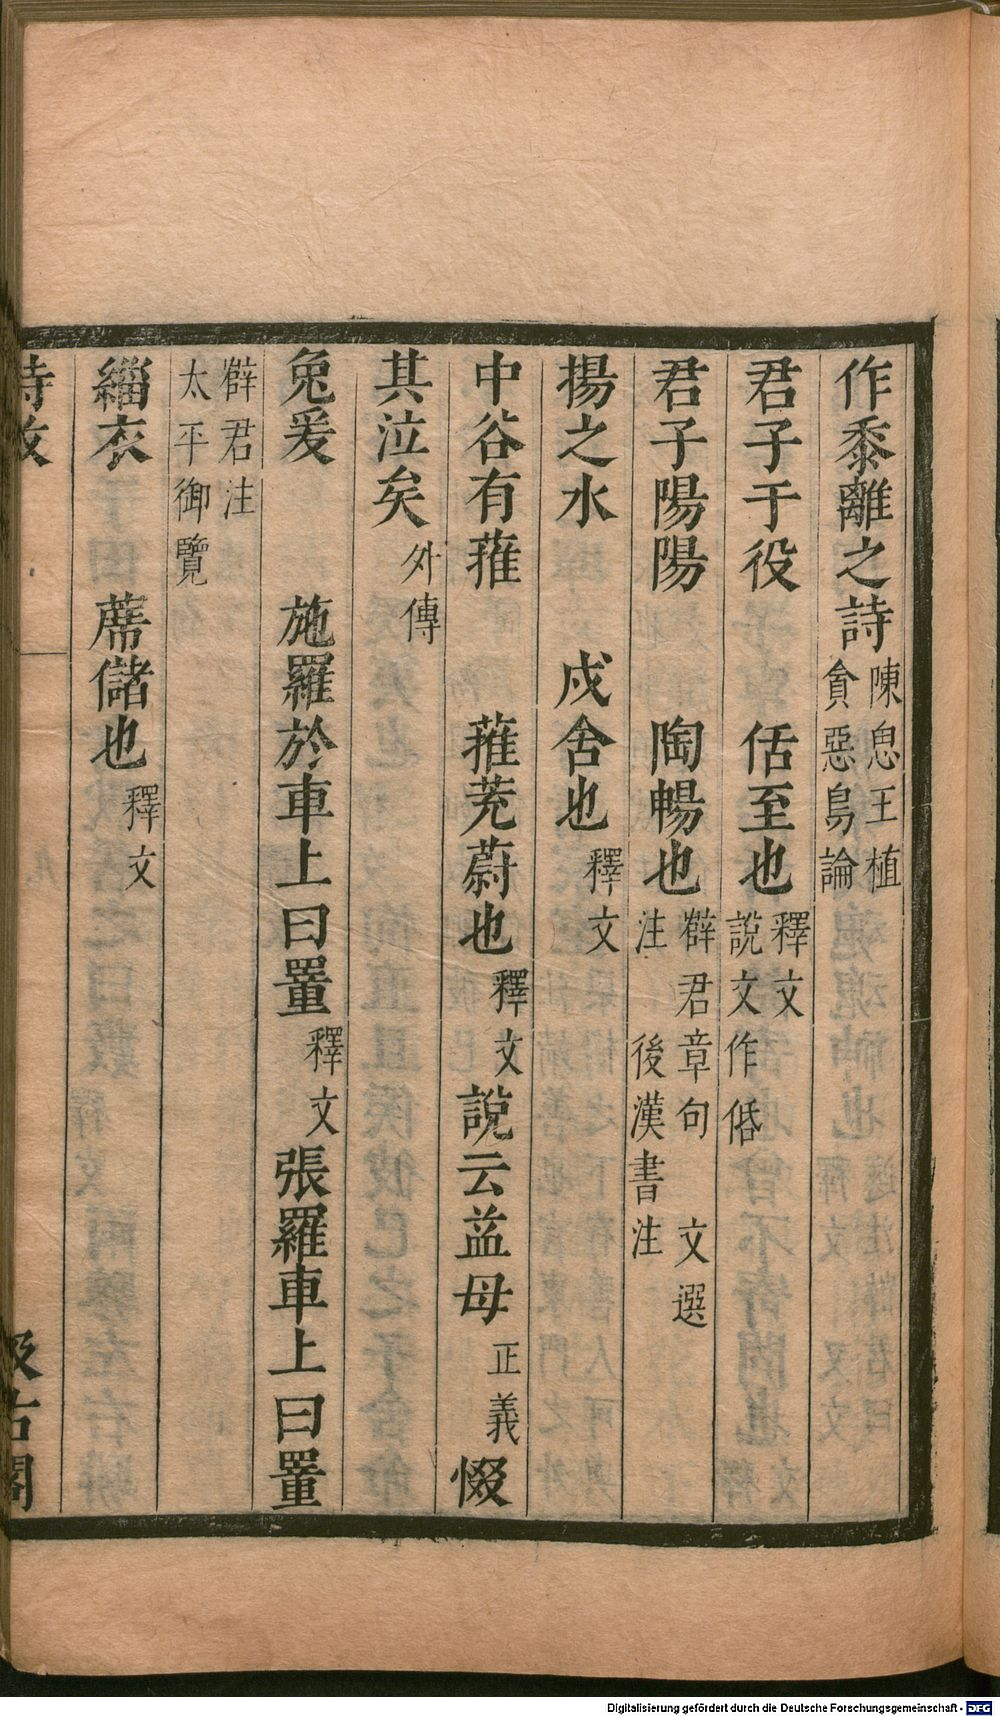 作黍離之詩陳思王植貪惡鳥論
君子于役 佸至也釋文說文作佸
君子陽陽 陶暢也薛君章句 文選注 後漢書注
揚之水 戍舍也釋文
中谷有蓷 蓷茺蔚也釋文說云益母正義惙
其泣矣外傳
兔爰 施羅於車上曰罿釋文張羅車上曰罿
薛君注太平御覽
緇衣 蓆儲也釋文
詩攷 汲古閣
Digitalisierung gefördert durch die Deutsche Forschungsgemeinschaft - DFG